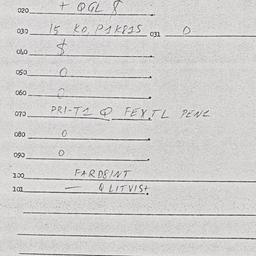 020 + QGL $
030 15 KO, P1K815 031 0
040 $
050 0
060 0
070 PRI-T1 Q FEXTL PENZ
080 0
090 0
100 FARD8INT
101 — Q LITVIST